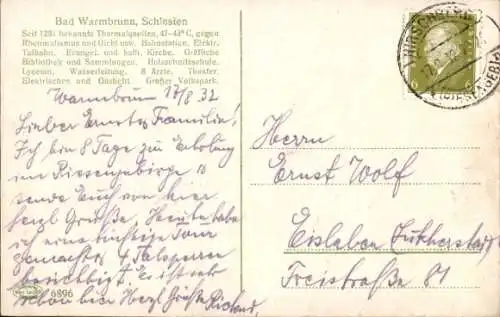 Bad Warmbrunn, Schlesien
Seit 1281 bekannte Thermalquellen, 47–43° C, gegen
Rheumatismus und Gicht usw. Bahnstation. Elektr.
Talbahn. Evangel. und kath. Kirche. Gräfliche
Bibliothek und Sammlungen. Holzschnitzschule.
Lyceum. Wasserleitung. 8 Ärzte. Theater.
Elektrisches und Gaslicht. Großer Volkspark.
Warmbrunn 17/8 32
Lieber Ernst u. Familie!
Ich bin 8 Tage zur Erholung
im Riesengebirge u
sende Euch von hier
herzl Grüße, Heute habe
ich eine tüchtige Tour
gemacht u 4 Talsperren
besichtigt. Es ist sehr
schön hier Herzl Grüße Richard,
6896
Herrn
Ernst Wolf
Eisleben
Freistraße 81